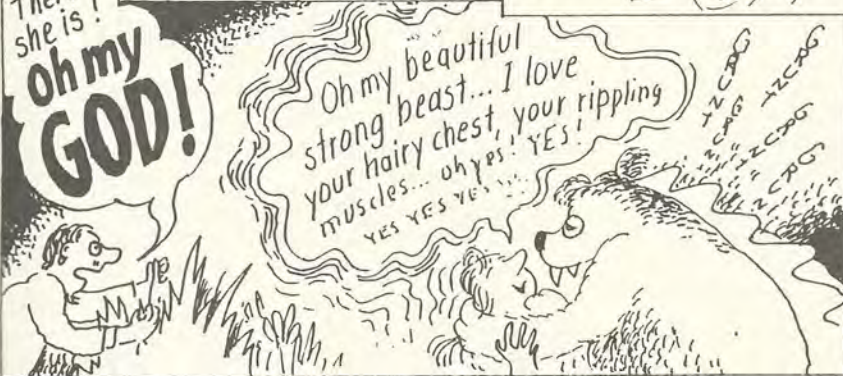 she is!
oh my
GOD!
Oh my beautiful
strong beast... I love
your hairy chest, your rippling
muscles... oh yes! YES!
YES YES YES...
GRUNT
GRUNT
GRUNT
GRUNT